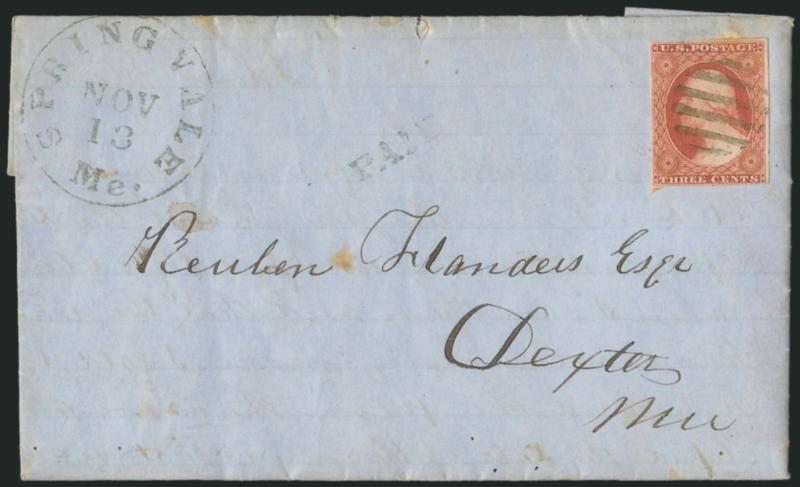 SPRINGVALE
NOV
13
Me.
PAID
U.S. POSTAGE
THREE CENTS
Reuben Flanders Esqr
Dexter
Me